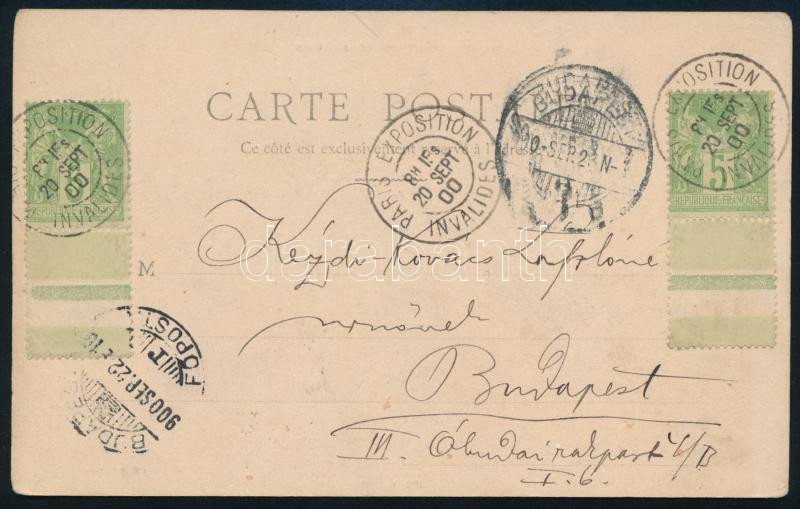 CARTE POST
Ce côté est exclusivement réservé à l'adresse
PARIS EXPOSITION
8H 15S
20 SEPT
00
INVALIDES
PARIS EXPOSITION
8H 15S
20 SEPT
00
INVALIDES
PARIS EXPOSITION
8H 15S
20 SEPT
00
INVALIDES
BUDAPEST
900 SEP. 2 N-
5
REPUBLIQUE FRANÇAISE
darabanth
M
Kézdi-Kovács Lászlóné
úrnőnek
Budapest
III. Óbudai rakpart 4/B
I. 6.
FŐPOST
900 SEP. 22
BUDAPEST